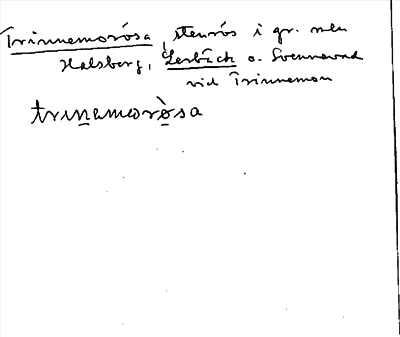 Trinnemorósa, stenrós i gr. mln
Halsberg, Lerbäck o. Svennevad
vid Trinnemon
trinemoròsa